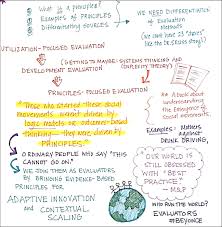 What is a principle?
Examples of PRINCIPLES
Differentiating SOURCES
WE NEED DIFFERENTIATION
of Evaluation
Methods
(We can have 23 "daves"
like the Dr. Seuss story)
UTILIZATION-FOCUSED EVALUATION
DEVELOPMENT EVALUATION
(GETTING TO MAYBE: SYSTEMS THINKING AND
COMPLEXITY THEORY)
PRINCIPLES-FOCUSED EVALUATION
Those who started these social
movements weren't driven by
logic models or outcomes-based
thinking — they were driven by
PRINCIPLES.
A book about
understanding
the Emergence of
Social movements.
Examples: Mothers
Against
DRUNK DRIVING,
ORDINARY PEOPLE WHO SAY "THIS
CANNOT GO ON"
WE JOIN THEM AS EVALUATORS
BY BRINGING EVIDENCE-BASED
PRINCIPLES FOR
ADAPTIVE INNOVATION
and CONTEXTUAL
SCALING
OUR WORLD IS
STILL OBSESSED
WITH "BEST
PRACTICE"
WHO RUN THE WORLD?
EVALUATORS
#BEYONCE